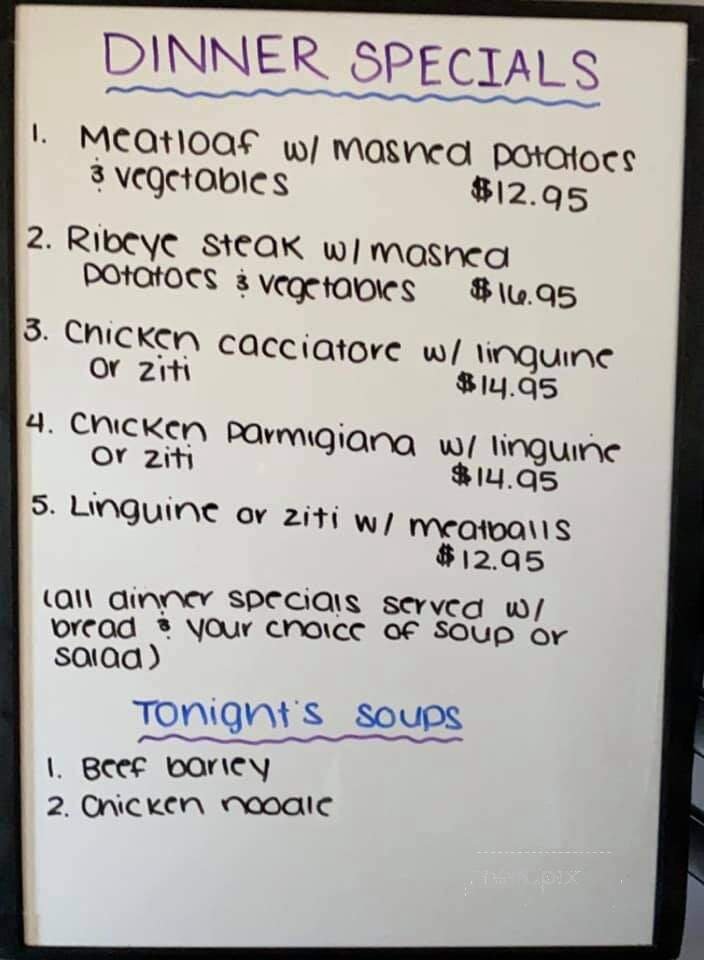 DINNER SPECIALS
1. Meatloaf w/ mashed potatoes
& vegetables $12.95
2. Ribeye steak w/ mashed
potatoes & vegetables $16.95
3. Chicken cacciatore w/ linguine
or ziti
$14.95
4. Chicken parmigiana w/ linguine
or ziti
$14.95
5. Linguine or ziti w/ meatballs
$12.95
(all dinner specials served w/
bread & your choice of soup or
salad)
Tonight's soups
1. Beef barley
2. Chicken noodle